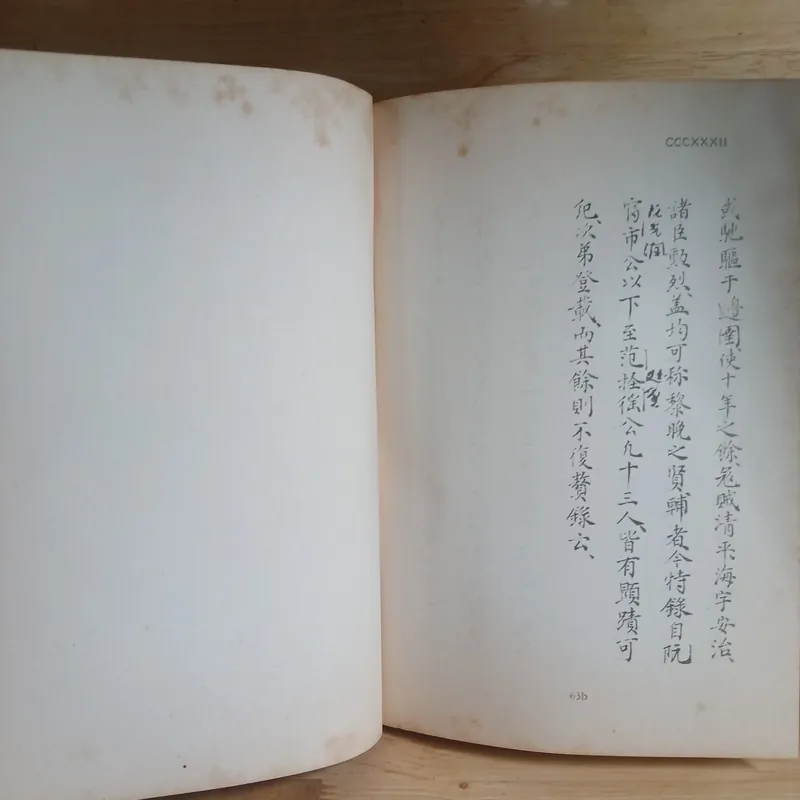 CCCXXXII
或馳驅于邊圉、使十年之餘、寇賊清平、海宇安治、
諸臣勲烈、盖均可称黎晚之賢輔者、今特錄自阮
富市公以下至范拴徭公凡十三人、皆有顯蹟可
阮光潤
紀、次弟登載、而其餘則不復贅錄云、
63b